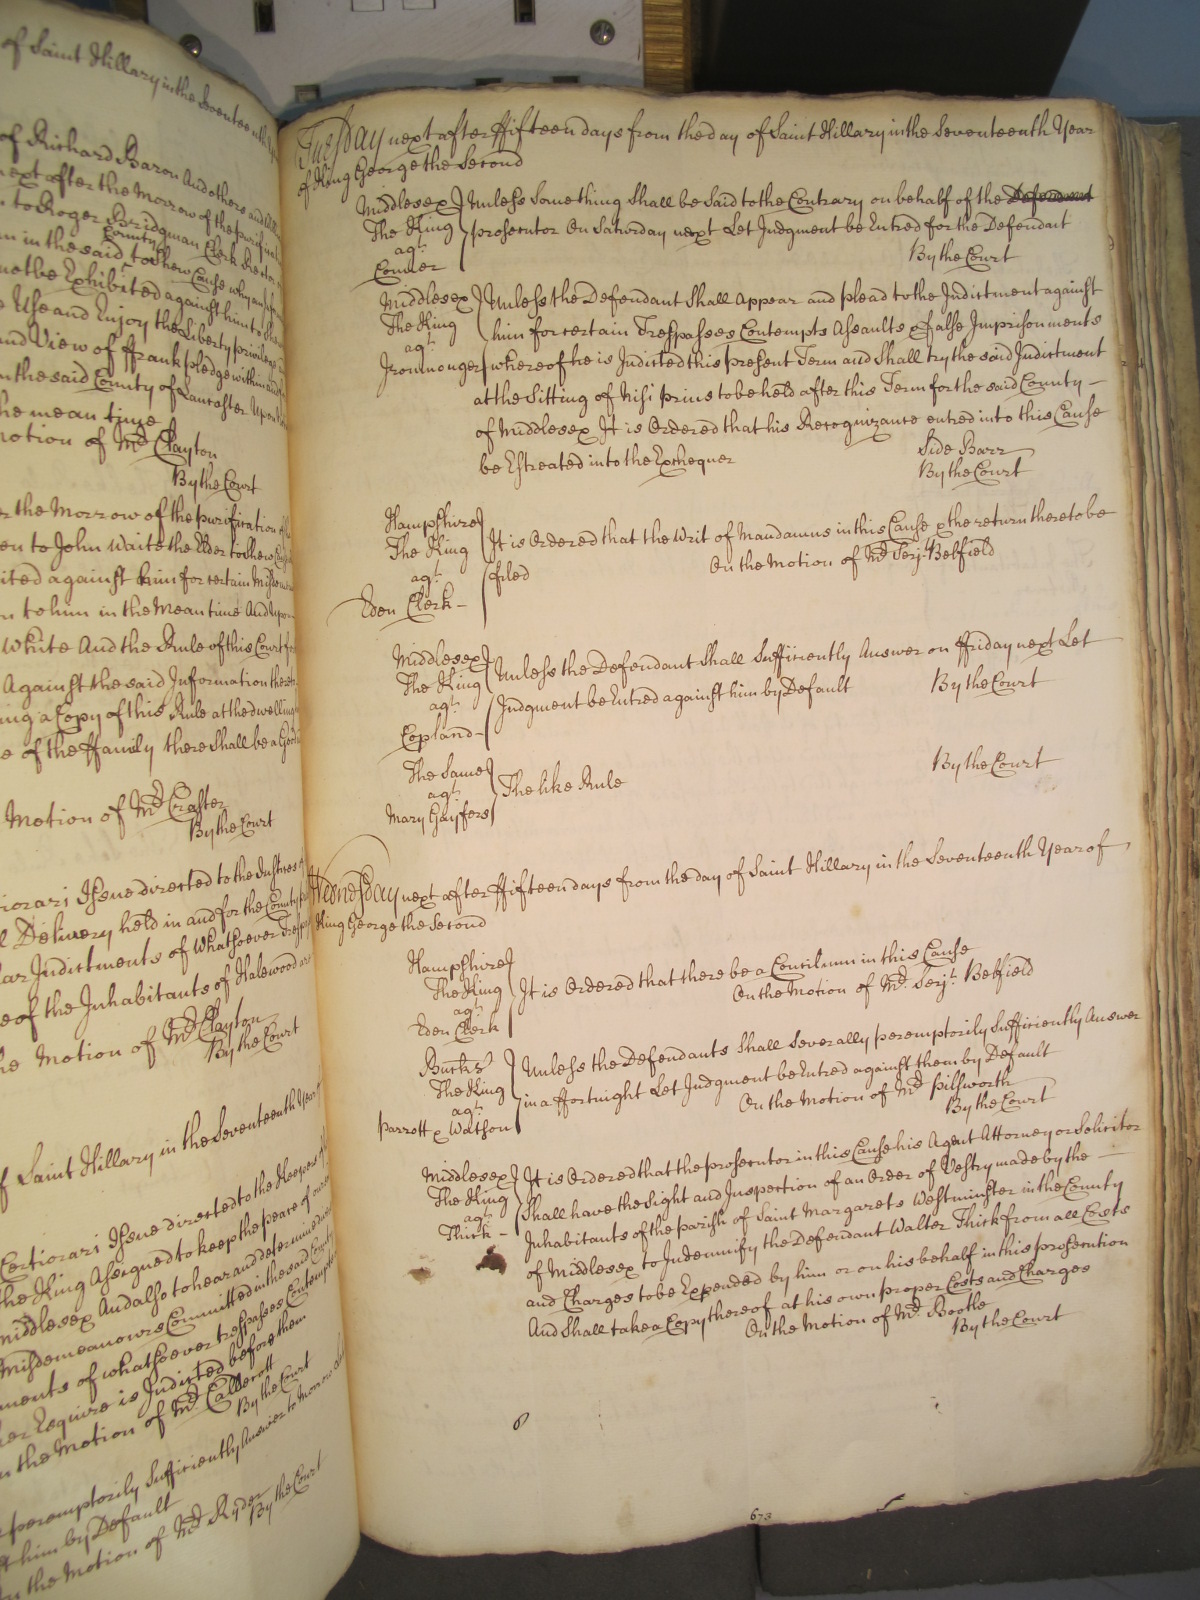 of Saint Hillary in the Seventeenth Year
of Richard Baron And others and
next after the Morrow of the purification
to Roger Bridgman Clerk Rector
County
in the said to Shew Cause why an
be Exhibited against him to Shew
Use and Enjoy the Liberty priviledge
and View of ffrankpledge within and
in the said County of Lancaster Upon
he mean time
Motion of Mr. Clayton
By the Court
the Morrow of the purification
en to John Waite the Elder to Shew Cause
ited against him for certain Misdemeanors
n to him in the Mean time And Upon
White And the Rule of this Court
Against the said Information there
ing a Copy of this Rule at the dwelling
e of the ffamily there Shall be a Good
Motion of Mr. Craster
By the Court
iorari Issue directed to the Justices
l Delivery held in and for the County
ar Indictments of Whatsoever Trespasses
e of the Inhabitants of Halewood are
he Motion of Mr. Clayton
By the Court
f Saint Hillary in the Seventeenth Year
Certiorari Issue directed to the Keepers
the King Assigned to keep the peace of our
Middlesex And also to hear and determine
Misdemeanours Committed in the said County
ments of whatsoever trespasses Contempts
Esquire is Indicted before them
n the Motion of Mr. Caldecott
By the Court
peremptorily Sufficiently Answer to Morrow
t him by Default
n the Motion of Mr. Ryder
By the Court
Tuesday next after ffifteen days from the day of Saint Hillary in the Seventeenth Year
of King George the Second
Middlesex Unless Something Shall be Said to the Contrary on behalf of the Defendant
The King prosecutor On Saturday next Let Judgment be Entred for the Defendant
agt.
By the Court
Middlesex Unless the Defendant Shall Appear and plead to the Indictment against
The King him for certain Trespasses Contempts Assaults & false Imprisonments
agt.
Ironmonger whereof he is Indicted this present Term and Shall try the said Indictment
at the Sitting of Nisi prius to be held after this Term for the said County –
of Middlesex It is Ordered that his Recognizance entred into this Cause
be Estreated into the Exchequer Side Barr
By the Court
Hampshire
The King It is Ordered that the Writ of Mandamus in this Cause & the return thereto be
agt. filed On the Motion of Mr. Serjt. Belfield
Eden Clerk –
Middlesex Unless the Defendant Shall Sufficiently Answer on ffriday next Let
The King
agt. Judgment be Entred against him by Default By the Court
Copland –
The Same
agt. The like Rule By the Court
Mary Gayfers
Wednesday next after ffifteen days from the day of Saint Hillary in the Seventeenth Year of
King George the Second
Hampshire
The King It is Ordered that there be a Concilium in this Cause
agt. On the Motion of Mr. Serjt. Belfield
Eden Clerk
Bucks Unless the Defendants Shall Severally peremptorily Sufficiently Answer
The King in a ffortnight Let Judgment be Entred against them by Default
agt. On the Motion of Mr. Pilsworth
Parrott & Watson By the Court
Middlesex It is Ordered that the prosecutor in this Cause his Agent Attorney or Solicitor
The King Shall have the Sight and Inspection of an Order of Vestry made by the –
agt. Inhabitants of the parish of Saint Margarets Westminster in the County
Thick – of Middlesex to Indemnify the Defendant Walter Thick from all Costs
and Charges to be Expended by him or on his behalf in this prosecution
And Shall take a Copy thereof at his own proper Costs and Charges
On the Motion of Mr. Bootle
By the Court
673